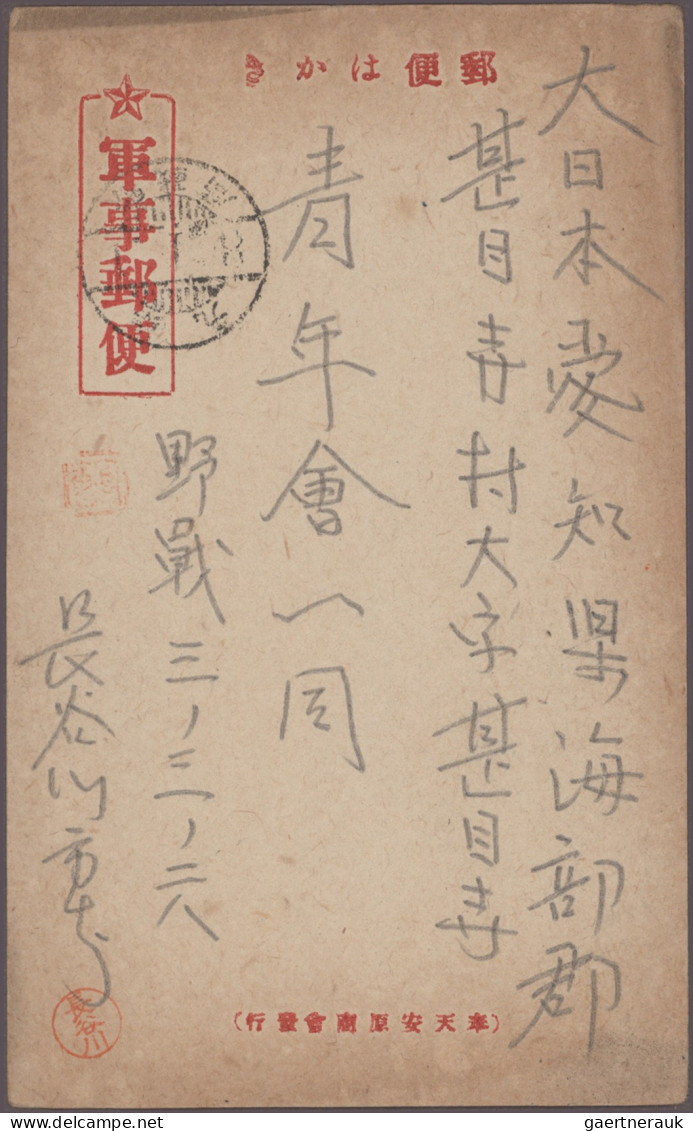 郵便はがき
大日本愛知県海部郡
甚目寺村大字甚目寺
青年會一同
軍事郵便
野戰三ノ三ノ二八
長谷川市
長谷川
(奉天安原商會發行)
gaertnerauk